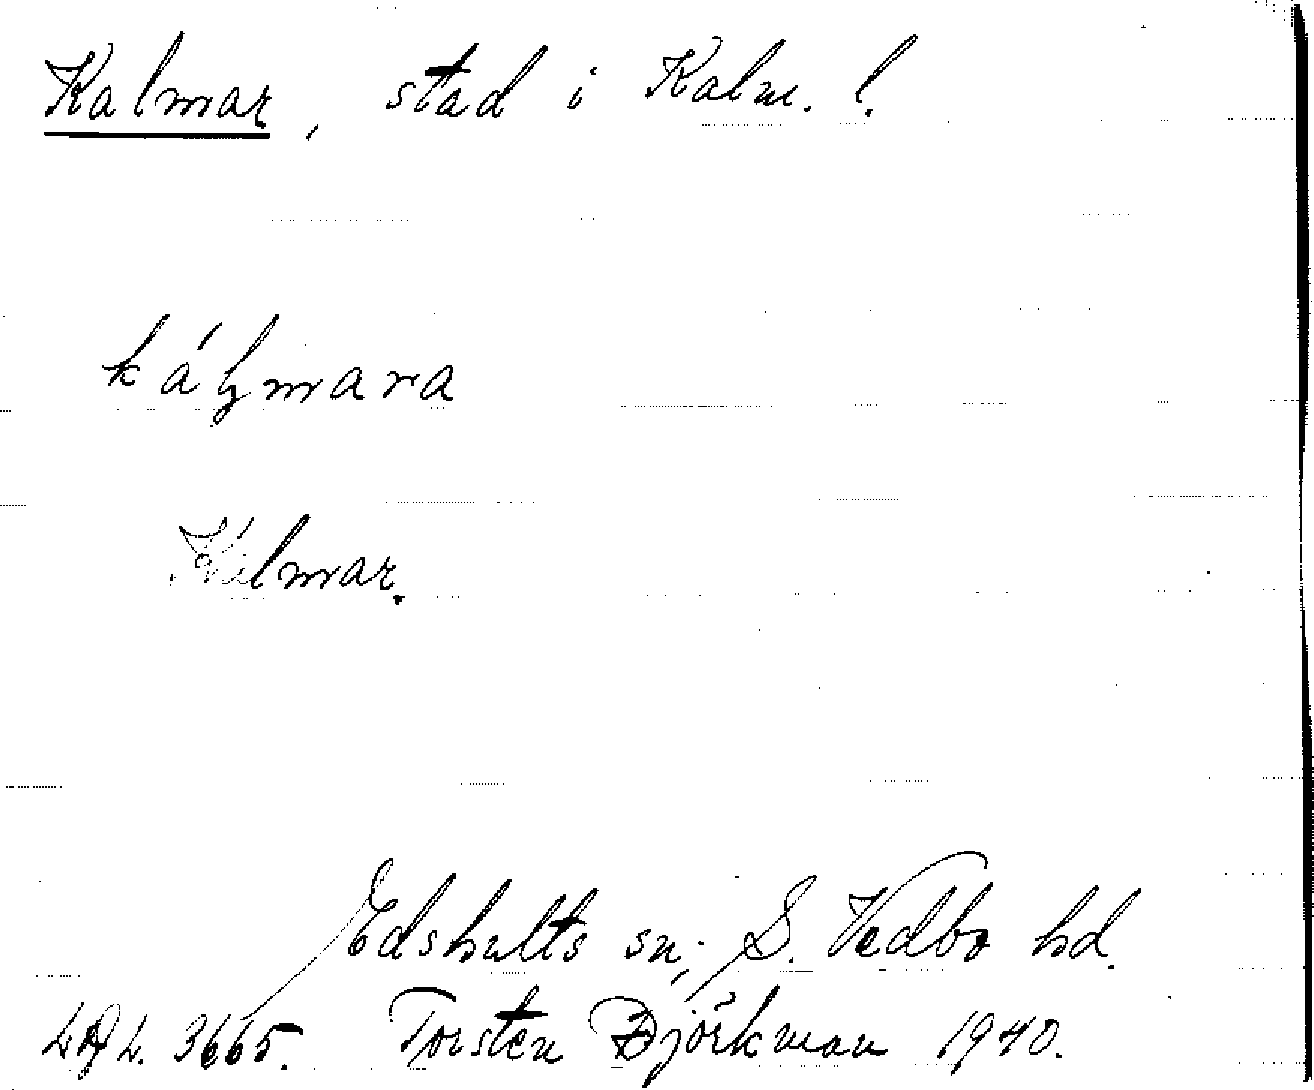 Kalmar, stad i Kalm. l.
kálmara
Kálmar.
Edshults sn, S. Vedbo hd.
LAL. 3665. Torsten Björkman 1940.